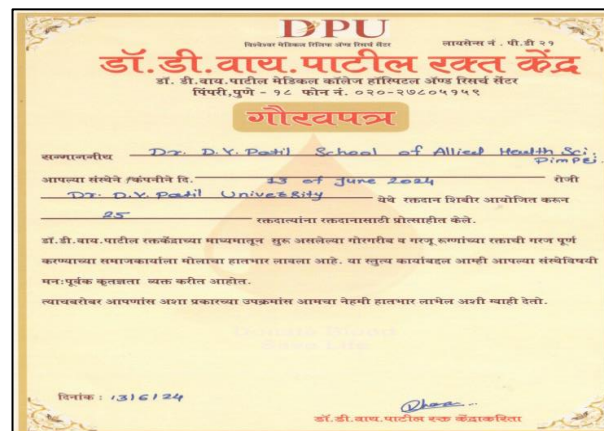 DPU
विश्वेश्वर मेडिकल रिलिफ अॅण्ड रिसर्च सेंटर
लायसेन्स नं . पी.डी २१
डॉ.डी.वाय.पाटील रक्त केंद्र
डॉ. डी. वाय. पाटील मेडिकल कॉलेज हॉस्पिटल अॅण्ड रिसर्च सेंटर
पिंपरी,पुणे - १८ फोन नं. ०२०-२७८०५१५९
गौरवपत्र
सन्माननीय Dr. D.Y. Patil School of Allied Health Sci.
Pimpri.
आपल्या संस्थेने /कंपनीने दि. 13 of June 2024 रोजी
Dr. D.Y. Patil University येथे रक्तदान शिबीर आयोजित करून
25 रक्तदात्यांना रक्तदानासाठी प्रोत्साहीत केले.
डॉ.डी.वाय.पाटील रक्तकेंद्राच्या माध्यमातून सुरू असलेल्या गोरगरीब व गरजू रूग्णांच्या रक्ताची गरज पूर्ण
करण्याच्या समाजकार्याला मोलाचा हातभार लावला आहे. या स्तुत्य कार्याबद्दल आम्ही आपल्या संस्थेविषयी
मनःपूर्वक कृतज्ञता व्यक्त करीत आहोत.
त्याचबरोबर आपणांस अशा प्रकारच्या उपक्रमांस आमचा नेहमी हातभार लाभेल अशी ग्वाही देतो.
Donate Blood
Save Life
दिनांक : 13/6/24
डॉ.डी.वाय.पाटील रक्त केंद्राकरिता